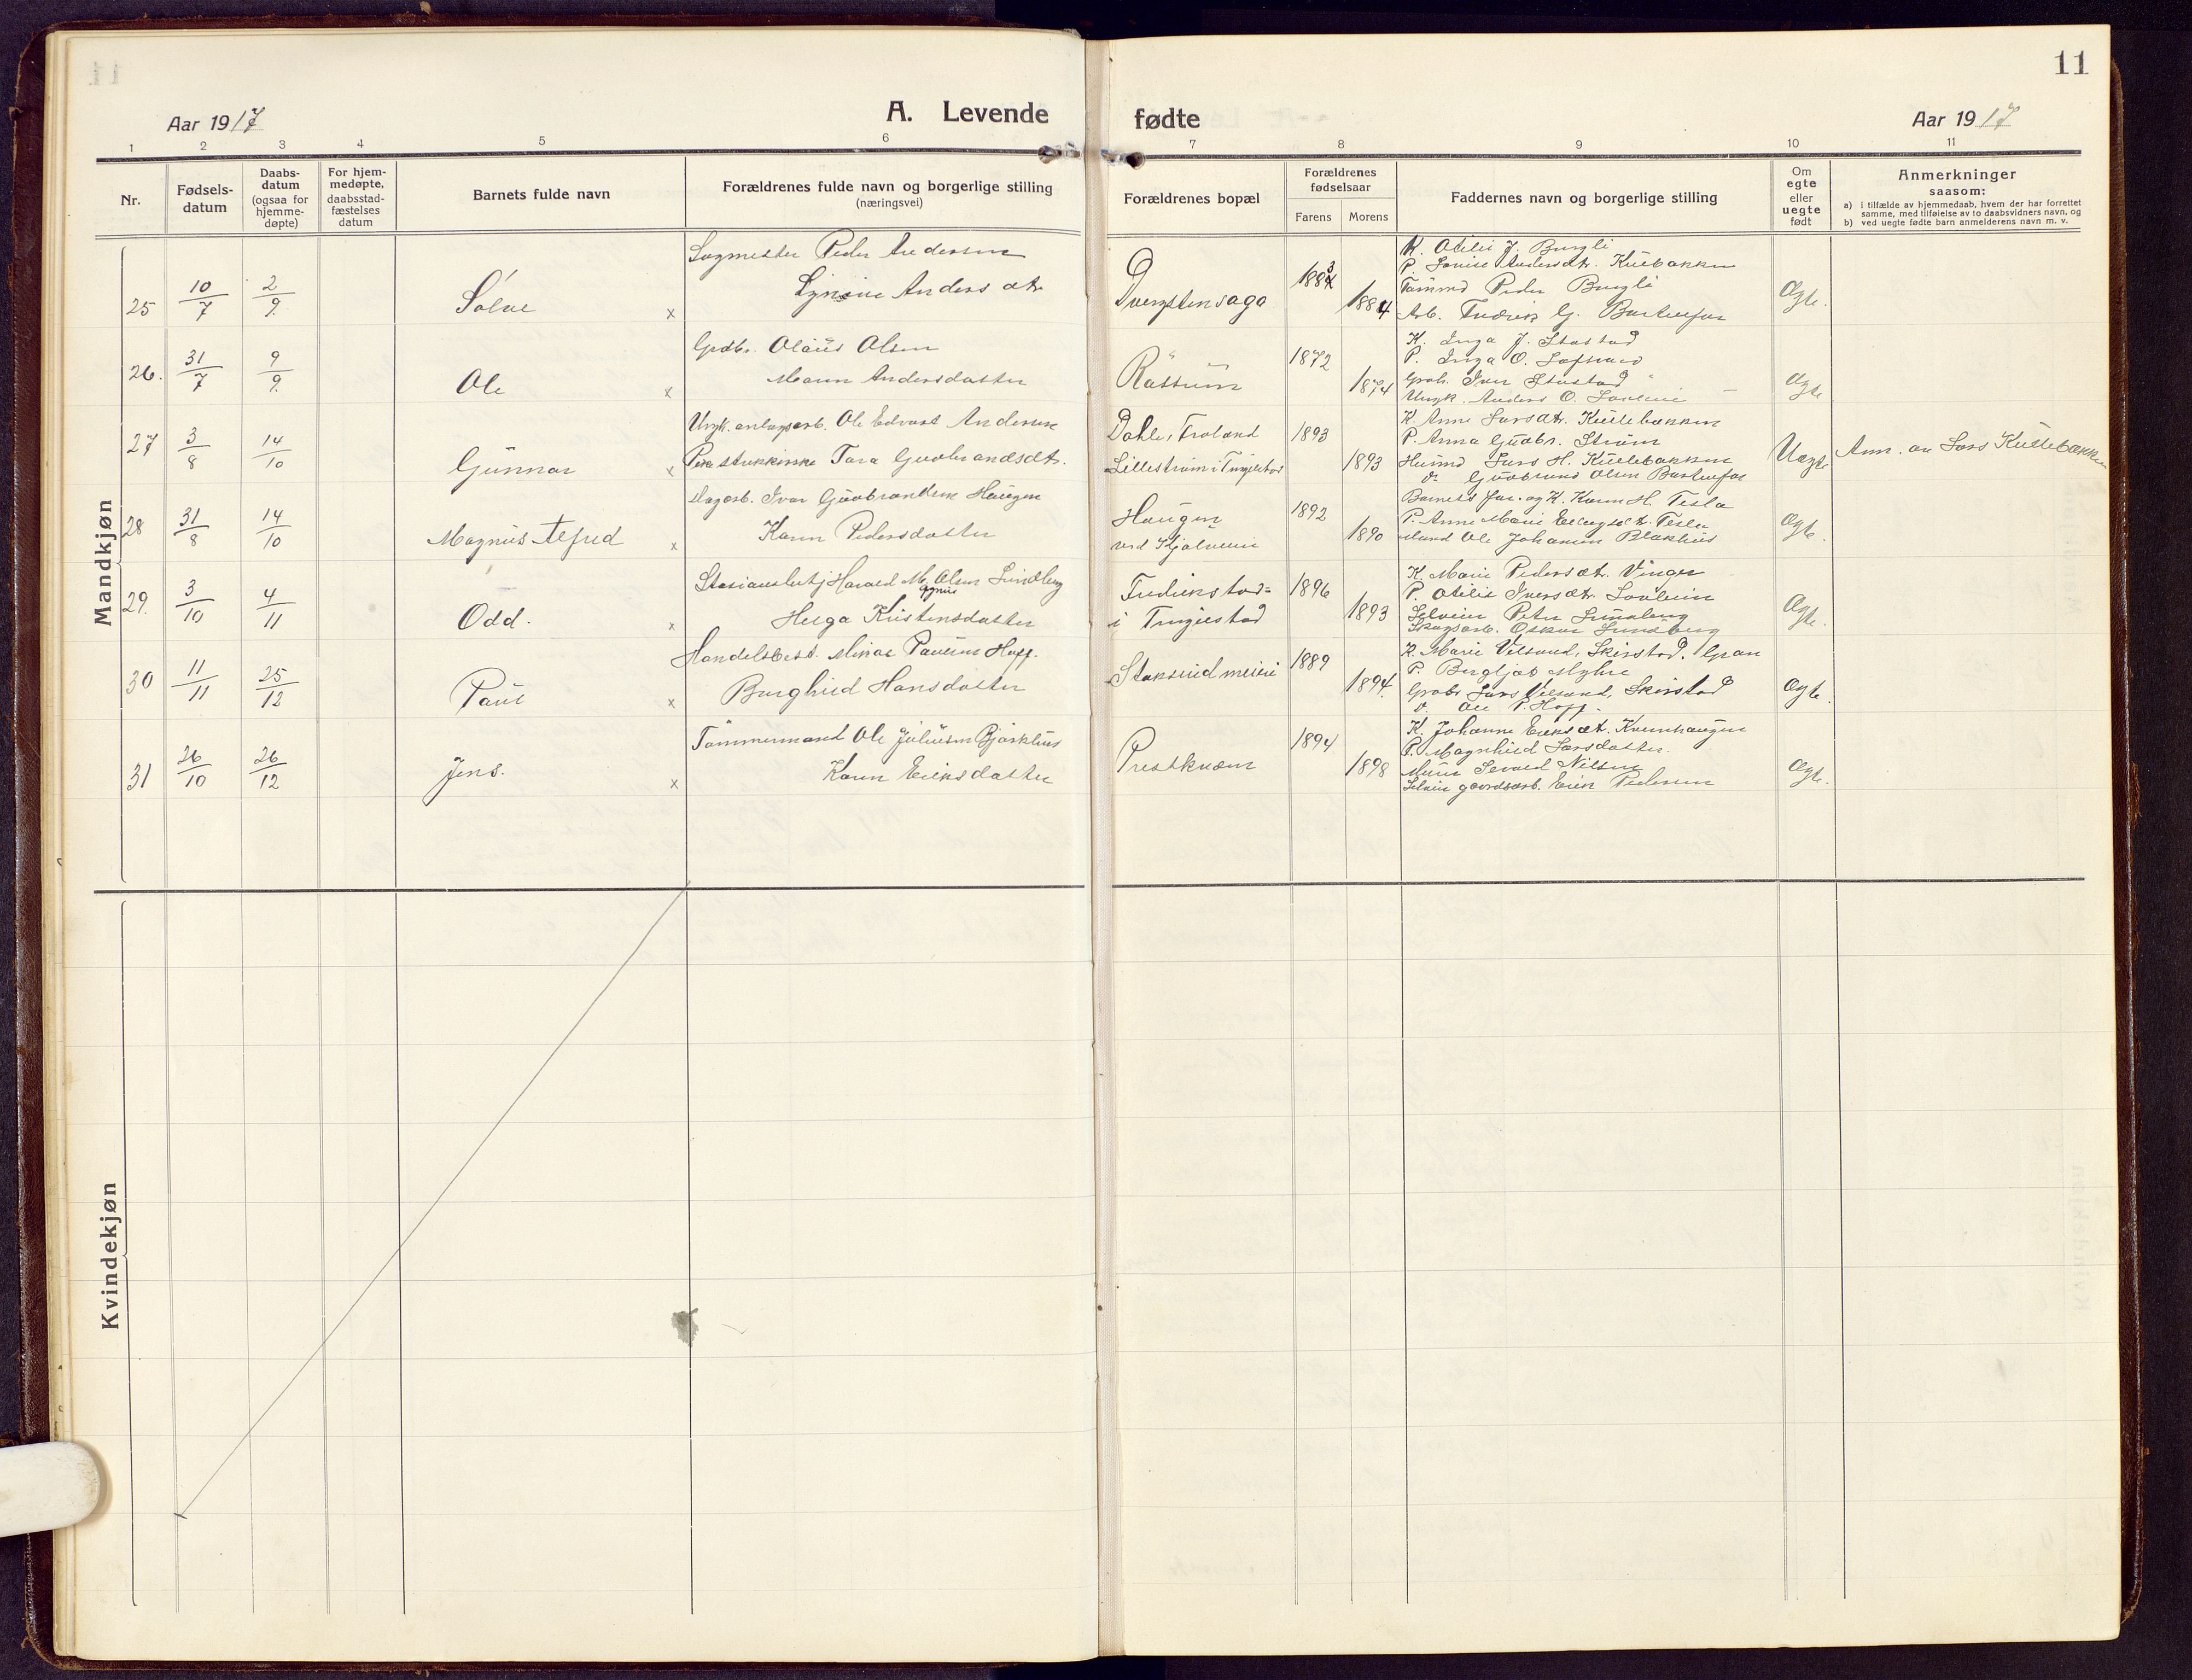 11
Aar 1917
A. Levende
fødte
Aar 1917
1 2 3 4 5 6 7 8 9 10 11
Nr.
Fødsels-
datum
Daabs-
datum
(ogsaa for
hjemme-
døpte)
For hjem-
medøpte,
daabsstad-
fæstelses
datum
Barnets fulde navn
Forældrenes fulde navn og borgerlige stilling
(næringsvei)
Forældrenes bopæl
Forældrenes
fødselsaar
Farens Morens
Faddernes navn og borgerlige stilling
Om
egte
eller
uegte
født
Anmerkninger
saasom:
a) i tilfælde av hjemmedaab, hvem der har forrettet
samme, med tilføielse av to daabsvidners navn, og
b) ved uegte fødte barn anmelderens navn m. v.
Mandkjøn
25 10/7 2/9 Sølve x
Sagmester Peder Andersen
Andersdtr.
1883
1884
K. Otilie J. Burgli
P. Andersdtr.
Peder Burgli
Arb. Fredrik G.
Ægte.
26. 31/7 9/9. Ole x
Grdbr. Olaus Olsen
Maren Andersdatter
Røssum
1872
1874
K. Inga J. Stastad
P. Inga O.
Grdb. Iver Stastad
Ungk. Anders O.
Ægte
27 3/8 14/10 Gunnar x
Ungk. anlægsarb. Ole Edvart Andersen
Tora Gudbrandsdtr.
Dahle, Froland
Lillestrøm i Tingelstad
1893
1893
K. Anne Larsdtr. Kittilsbakken
P. Anna Gudbr. Strøm
Husmd Lars H. Kittilsbakken
do Gudbrand Olsen
Uægte
Anm. av Lars Kittilsbakken
28 31/8 14/10 Magnus Alfred x
Dagarb. Iver Gudbrandsen Haugen
Karen Pedersdatter
Haugen
ved
1892
1890
Barnets far. og K. Karen H. Tesla
P. Anne Marie Tesla
Ole Johansen Blakhus
Ægte.
29. 3/10 4/11 Odd. x
Stasjonsbetj Harald Magnus Olsen Lundberg
Helga Kristensdatter
Fredrikstad
i Tingelstad
1896
1893
K. Marie Pedersdtr. Vinger
P. Otilie Iversdtr.
Selveier Peter Lundberg
Skogsarb. Oskar Lundberg
Ægte.
30 11/11 25/12 Paul x
Handelsbest. Paulsen Hoff.
Borghild Hansdatter
Staksrud meieri
1889
1894.
K. Marie Velsand, Skirstad, Gran
P. Bergljot Myhre
Grdbr Lars Velsand, Skirstad
do. Ole P. Hoff.
Ægte.
31 26/10 26/12 Jens. x
Tømmermand Ole Juliusen Bjørklund
Karen Eriksdatter
Prestkvern
1894
1898
K. Johanne Eriksdt. Kvernhaugen
P. Magnhild Larsdatter.
Nilsen
Selveier gaardsarb. Erik Pedersen
Ægte.
Kvindekjøn